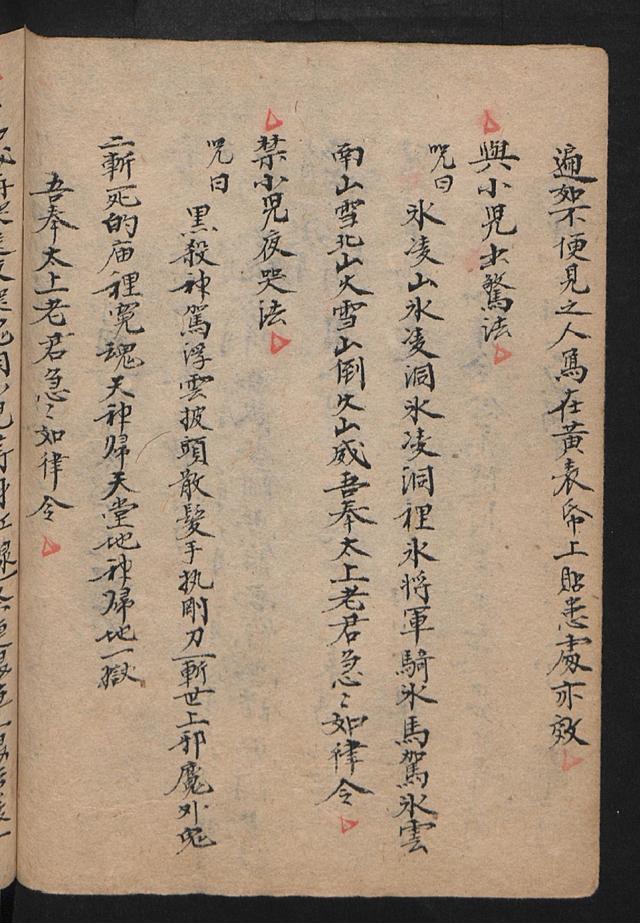 遍如不便見之人寫在黃表帋上貼患處亦效
與小児土驚法
咒曰
氷凌山氷凌洞氷凌洞裡氷將軍騎氷馬駕氷雲
南山雪北山火雪山倒火山威吾奉太上老君急〻如律令
禁小児夜哭法
咒曰
黑殺神駕浮雲披頭散髮手执剛刀一斬世上邪魔外鬼
二斬死的庙裡寃魂天神歸天堂地神歸地獄
吾奉太上老君急〻如律令